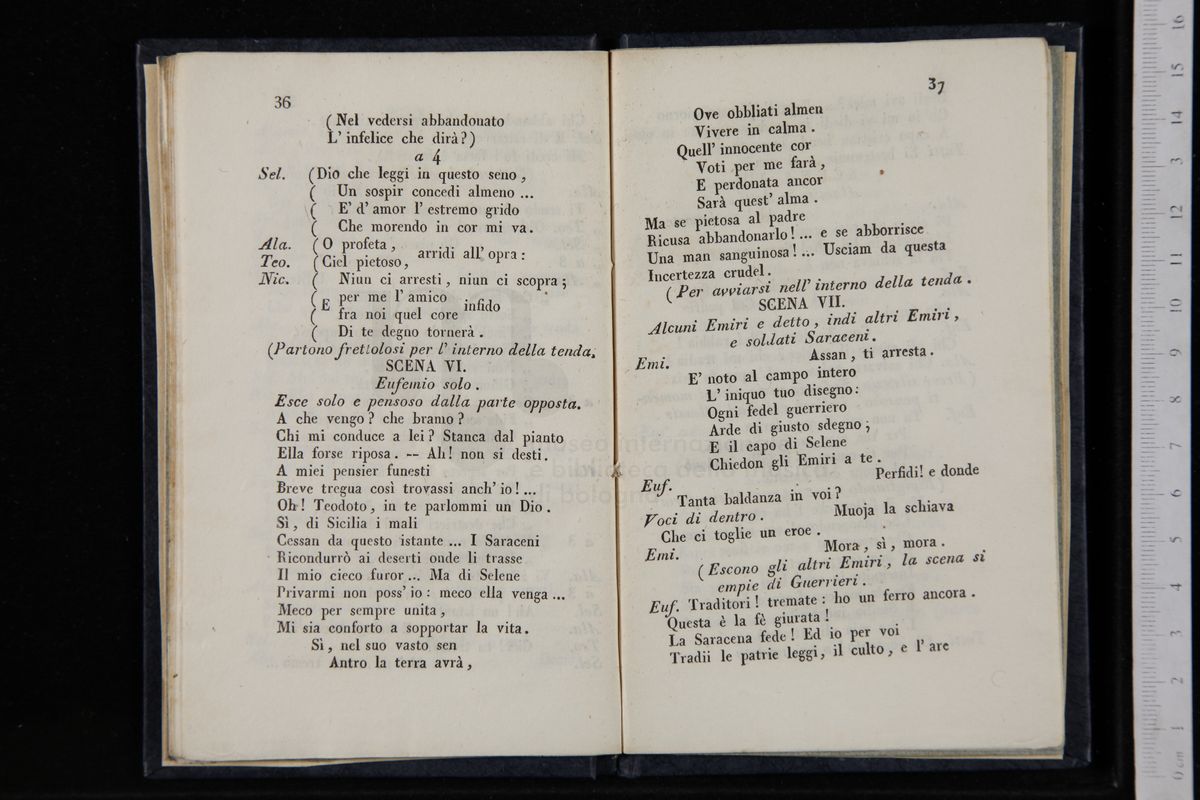 36
(Nel vedersi abbandonato
L' infelice che dirà?)
a 4
Sel. (Dio che leggi in questo seno,
( Un sospir concedi almeno ...
( E' d' amor l' estremo grido
( Che morendo in cor mi va.
Ala. (O profeta,
Teo. (Ciel pietoso, arridi all' opra:
Nic. ( Niun ci arresti, niun ci scopra;
( E per me l' amico
( fra noi quel core infido
( Di te degno tornerà.
(Partono frettolosi per l' interno della tenda.
SCENA VI.
Eufemio solo.
Esce solo e pensoso dalla parte opposta.
A che vengo? che bramo?
Chi mi conduce a lei? Stanca dal pianto
Ella forse riposa. -- Ah! non si desti.
A miei pensier funesti
Breve tregua così trovassi anch' io! ...
Oh! Teodoto, in te parlommi un Dio.
Sì, di Sicilia i mali
Cessan da questo istante ... I Saraceni
Ricondurrò ai deserti onde li trasse
Il mio cieco furor ... Ma di Selene
Privarmi non poss' io: meco ella venga ...
Meco per sempre unita,
Mi sia conforto a sopportar la vita.
Sì, nel suo vasto sen
Antro la terra avrà,
37
Ove obbliati almen
Vivere in calma.
Quell' innocente cor
Voti per me farà,
E perdonata ancor
Sarà quest' alma.
Ma se pietosa al padre
Ricusa abbandonarlo! ... e se abborrisce
Una man sanguinosa! ... Usciam da questa
Incertezza crudel.
(Per avviarsi nell' interno della tenda.
SCENA VII.
Alcuni Emiri e detto, indi altri Emiri,
e soldati Saraceni.
Emi. Assan, ti arresta.
E' noto al campo intero
L' iniquo tuo disegno:
Ogni fedel guerriero
Arde di giusto sdegno;
E il capo di Selene
Chiedon gli Emiri a te.
Euf. Perfidi! e donde
Tanta baldanza in voi?
Voci di dentro. Muoja la schiava
Che ci toglie un eroe.
Emi. Mora, sì, mora.
(Escono gli altri Emiri, la scena si
empie di Guerrieri.
Euf. Traditori! tremate: ho un ferro ancora.
Questa è la fè giurata!
La Saracena fede! Ed io per voi
Tradii le patrie leggi, il culto, e l' are
museo internazionale
e biblioteca della musica
di bologna
0 cm 1 2 3 4 5 6 7 8 9 10 11 12 13 14 15 16